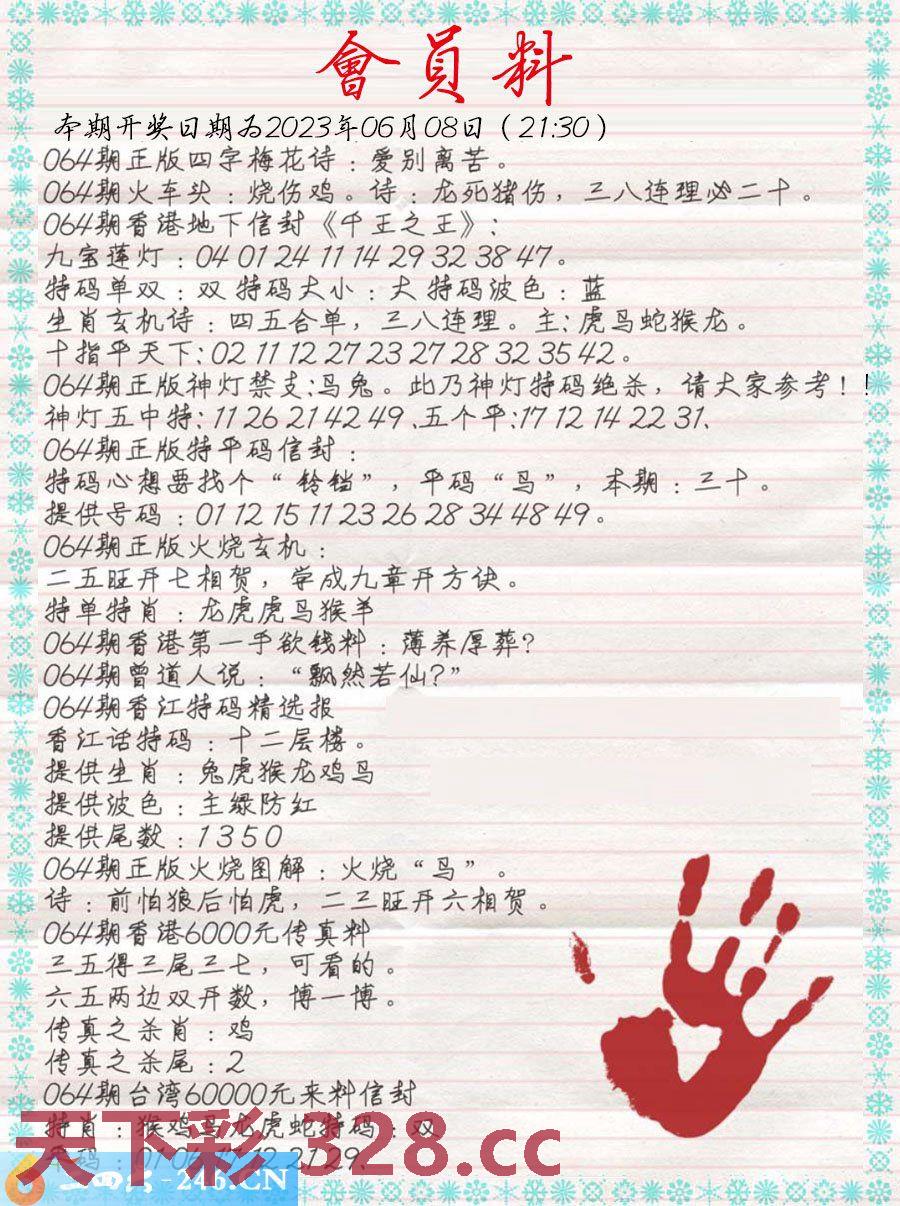 會員料
本期开奖日期为2023年06月08日（21:30）
064期正版四字梅花诗：爱别离苦。
064期火车头：烧伤鸡。诗：龙死猪伤，三八连理必二十。
064期香港地下信封《千王之王》：
九宝莲灯：04 01 24 11 14 29 32 38 47。
特码单双：双 特码大小：大 特码波色：蓝
生肖玄机诗：四五合单，三八连理。主：虎马蛇猴龙。
十指平天下：02 11 12 27 23 27 28 32 35 42。
064期正版神灯禁支：马兔。此乃神灯特码绝杀，请大家参考！！
神灯五中特：11 26 21 42 49、五个平：17 12 14 22 31、
064期正版特平码信封：
特码心想要找个“铃铛”，平码“马”，本期：三十。
提供号码：01 12 15 11 23 26 28 34 48 49。
064期正版火烧玄机：
二五旺开七相贺，学成九章开方诀。
特单特肖：龙虎虎马猴羊
064期香港第一手欲钱料：薄养厚葬？
064期曾道人说：“飘然若仙？”
064期香江特码精选报
香江话特码：十二层楼。
提供生肖：兔虎猴龙鸡马
提供波色：主绿防红
提供尾数：1 3 5 0
064期正版火烧图解：火烧“马”。
诗：前怕狼后怕虎，二三旺开六相贺。
064期香港6000元传真料
三五得三尾三七，可看的。
六五两边双开数，博一博。
传真之杀肖：鸡
传真之杀尾：2
064期台湾60000元来料信封
特肖：猴鸡马龙虎蛇特码：双
平码：01 04 11 12 21 29、
天下彩.328.cc
二四六-246.CN